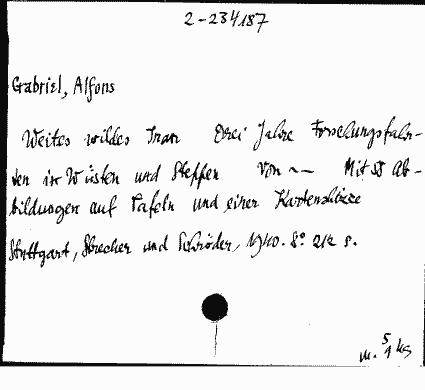 2-234187
Gabriel, Alfons
Weites wildes Iran Drei Jahre Forschungsfahr-
ten in Wüsten und Steppen Von ~ Mit 55 Ab-
bildungen auf Tafeln und einer Kartenskizze
Stuttgart, Strecker und Schröder, 1940. 8° 212 S.